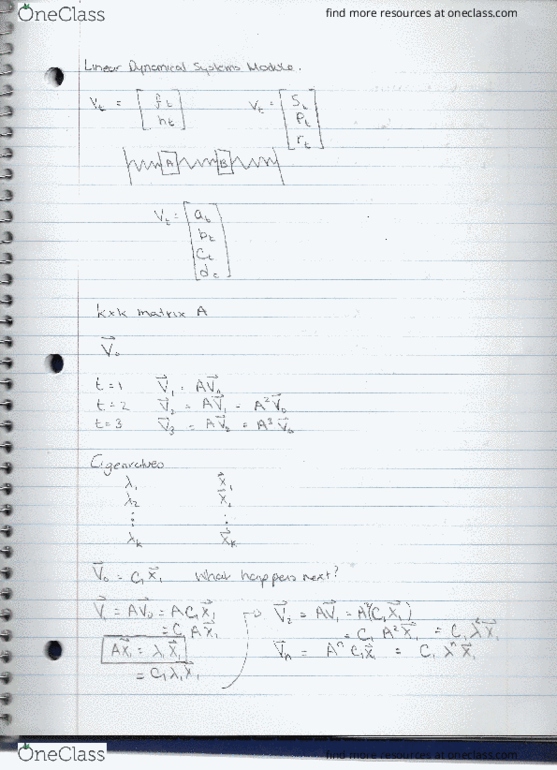 OneClass
find more resources at oneclass.com
Linear Dynamical Systems Module.
V_t = [f_t h_t] V_t = [S_t P_t r_t]
A B
V_t = [a_t b_t c_t d_t]
k×k matrix A
V⃗₀
t=1 V⃗₁ = AV⃗₀
t=2 V⃗₂ = AV⃗₁ = A²V⃗₀
t=3 V⃗₃ = AV⃗₂ = A³V⃗₀
Eigenvalues
λ₁ x⃗₁
λ₂ x⃗₂
⋮ ⋮
λₖ x⃗ₖ
V⃗₀ = C₁x⃗₁ What happens next?
V⃗₁ = AV⃗₀ = AC₁x⃗₁
= C₁Ax⃗₁
Ax⃗₁ = λ₁x⃗₁
= C₁λ₁x⃗₁
V⃗₂ = AV⃗₁ = A²(C₁x⃗₁)
= C₁A²x⃗₁ = C₁λ²x⃗₁
V⃗ₙ = AⁿC₁x⃗₁ = C₁λⁿx⃗₁
OneClass
find more resources at oneclass.com